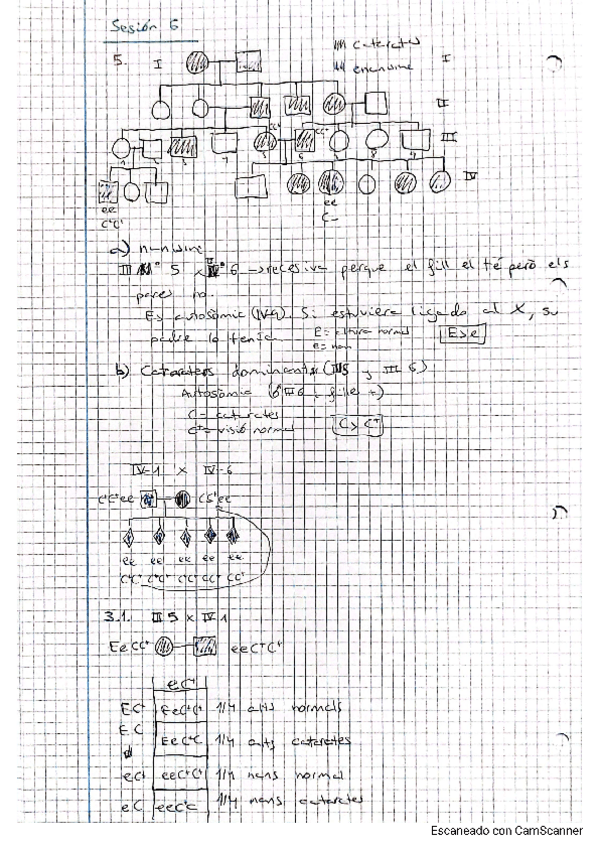 Sesión 6
5. I
cataractes
enanisme
II
CC⁺ CC⁺ III
1 2 3 4 5 6 7 8 9
IV
ee ee
C⁺C⁺ C-
a) nanisme.
III nº 5 x III nº 6 → recesiva perque el fill el té però els
pares no.
Es autosómic (IV-9). Si estuviera ligado al X, su
padre lo tenía. E = altura normal E>e
e = nan
b) Cataractes dominants (III5 y III 6)
Autosómic
C = cataractes
C⁺ = visió normal C > C⁺
IV-1 x IV-6
C⁺C⁺ee CC⁺ee
ee ee ee ee ee
C⁺C⁺ C⁺C⁺ C⁺C⁺ CC⁺ CC⁺
3.1. III 5 x IV 1
EeCC⁺ eeC⁺C⁺
eC⁺
EC⁺ EeC⁺C⁺ 1/4 alts normals
EC EeC⁺C 1/4 alts cataractes
eC⁺ eeC⁺C⁺ 1/4 nans normal
eC eeC⁺C 1/4 nans cataractes
Escaneado con CamScanner